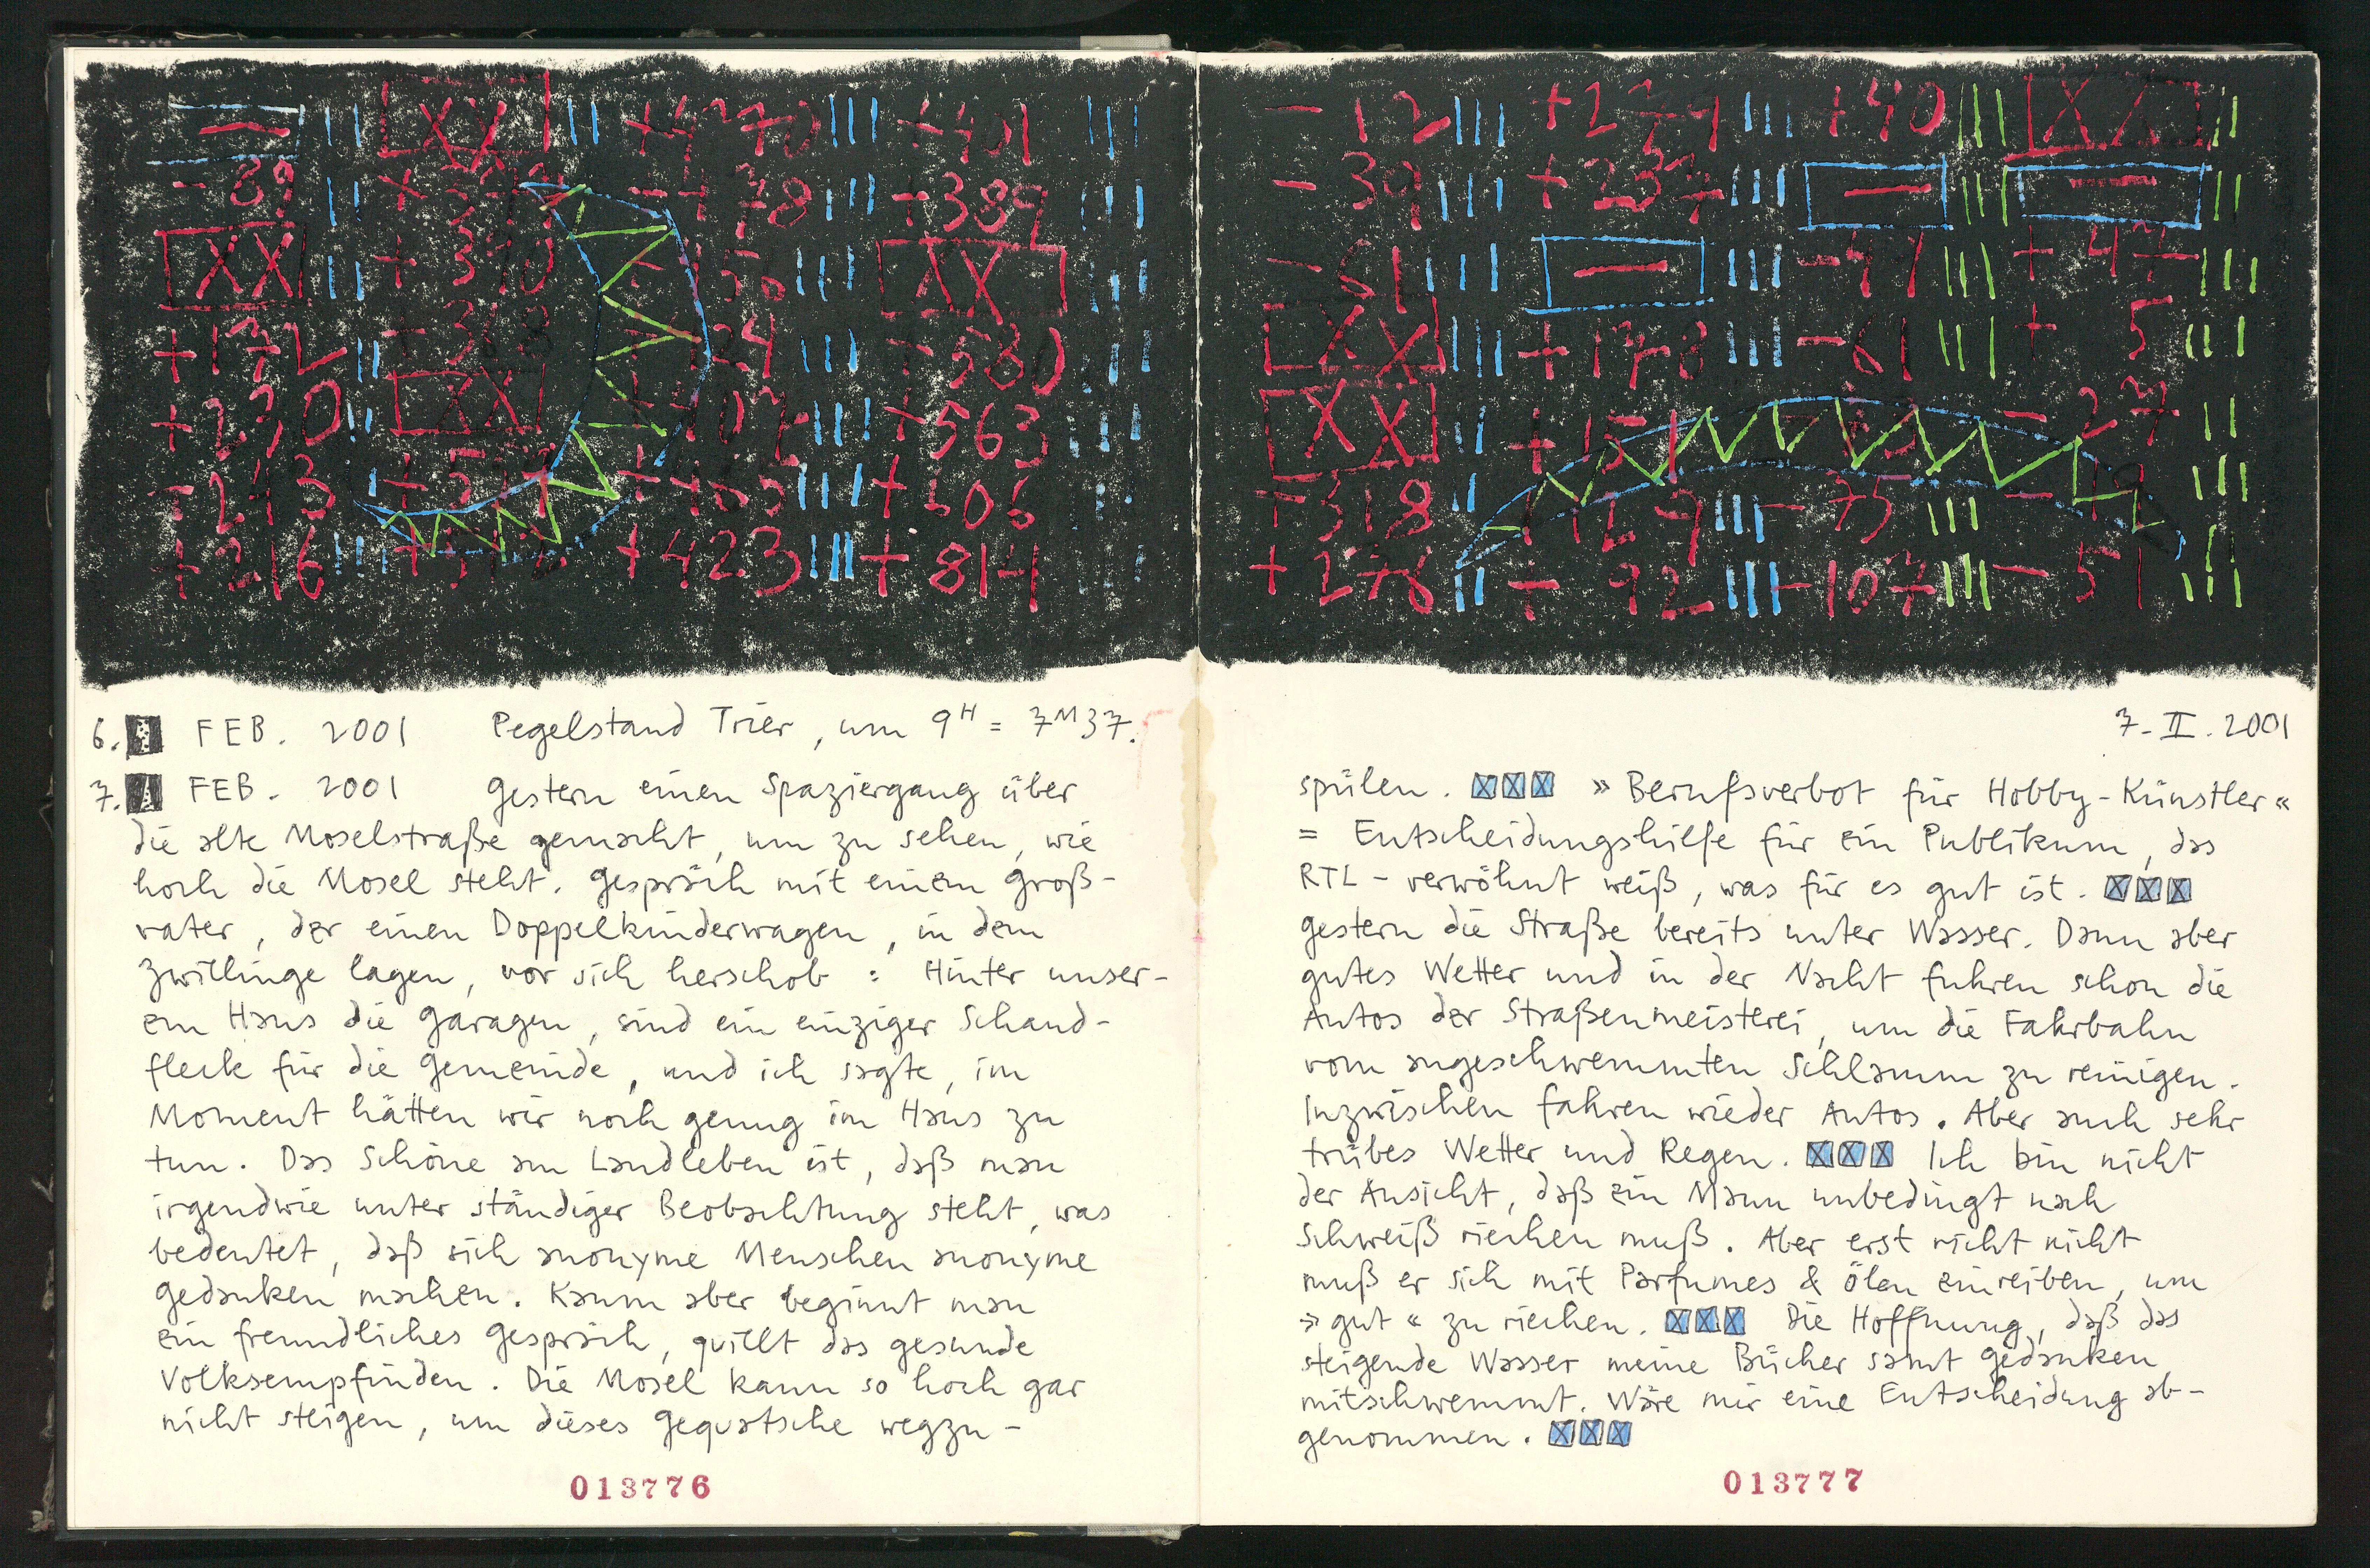 — ||| XX ||| +4270 ||| +401 |||
- 89 ||| ||| +389 |||
XX ||| + 390 ||| XX |||
+172 || + 368 ||| 580 |||
+230 || XX ||| 563 |||
243 | |||
+ 216 ||| + 423 ||| + 814
6. FEB. 2001 Pegelstand Trier, um 9H = 7M37.
7. FEB. 2001 Gestern einen Spaziergang über
die alte Moselstraße gemacht, um zu sehen, wie
hoch die Mosel steht. Gespräch mit einem Groß-
vater, der einen Doppelkinderwagen, in dem
Zwillinge lagen, vor sich herschob : Hinter unser-
em Haus die Garagen, sind ein einziger Schand-
fleck für die Gemeinde, und ich sagte, im
Moment hätten wir noch genug im Haus zu
tun. Das Schöne am Landleben ist, daß man
irgendwie unter ständiger Beobachtung steht, was
bedeutet, daß sich anonyme Menschen anonyme
Gedanken machen. Kaum aber beginnt man
ein freundliches Gespräch, quillt das gesunde
Volksempfinden. Die Mosel kann so hoch gar
nicht steigen, um dieses Gequatsche wegzu-
013776
- 12 ||| +279 ||| +40 ||| XX ||
- 39 ||| +237 ||| — ||| — ||
- 61 ||| — ||| -41 ||| + 47 |||
XX ||| +178 ||| -61 ||| + 5 |||
XX || +151 - 27 ||
318 || +129 ||| - 75 ||| - |||
+ 278 || + 92 ||| -107 ||| - 51 |||
7. II. 2001
spülen. XXX » Berufsverbot für Hobby-Künstler «
= Entscheidungshilfe für ein Publikum, das
RTL - verwöhnt weiß, was für es gut ist. XXX
Gestern die Straße bereits unter Wasser. Dann aber
gutes Wetter und in der Nacht fuhren schon die
Autos der Straßenmeisterei, um die Fahrbahn
vom angeschwemmten Schlamm zu reinigen.
Inzwischen fahren wieder Autos. Aber auch sehr
trübes Wetter und Regen. XXX Ich bin nicht
der Ansicht, daß ein Mann unbedingt nach
Schweiß riechen muß. Aber erst richt nicht
muß er sich mit Parfumes & Ölen einreiben, um
» gut « zu riechen. XXX Die Hoffnung, daß das
steigende Wasser meine Bücher samt Gedanken
mitschwemmt. Wäre mir eine Entscheidung ab-
genommen. XXX
013777